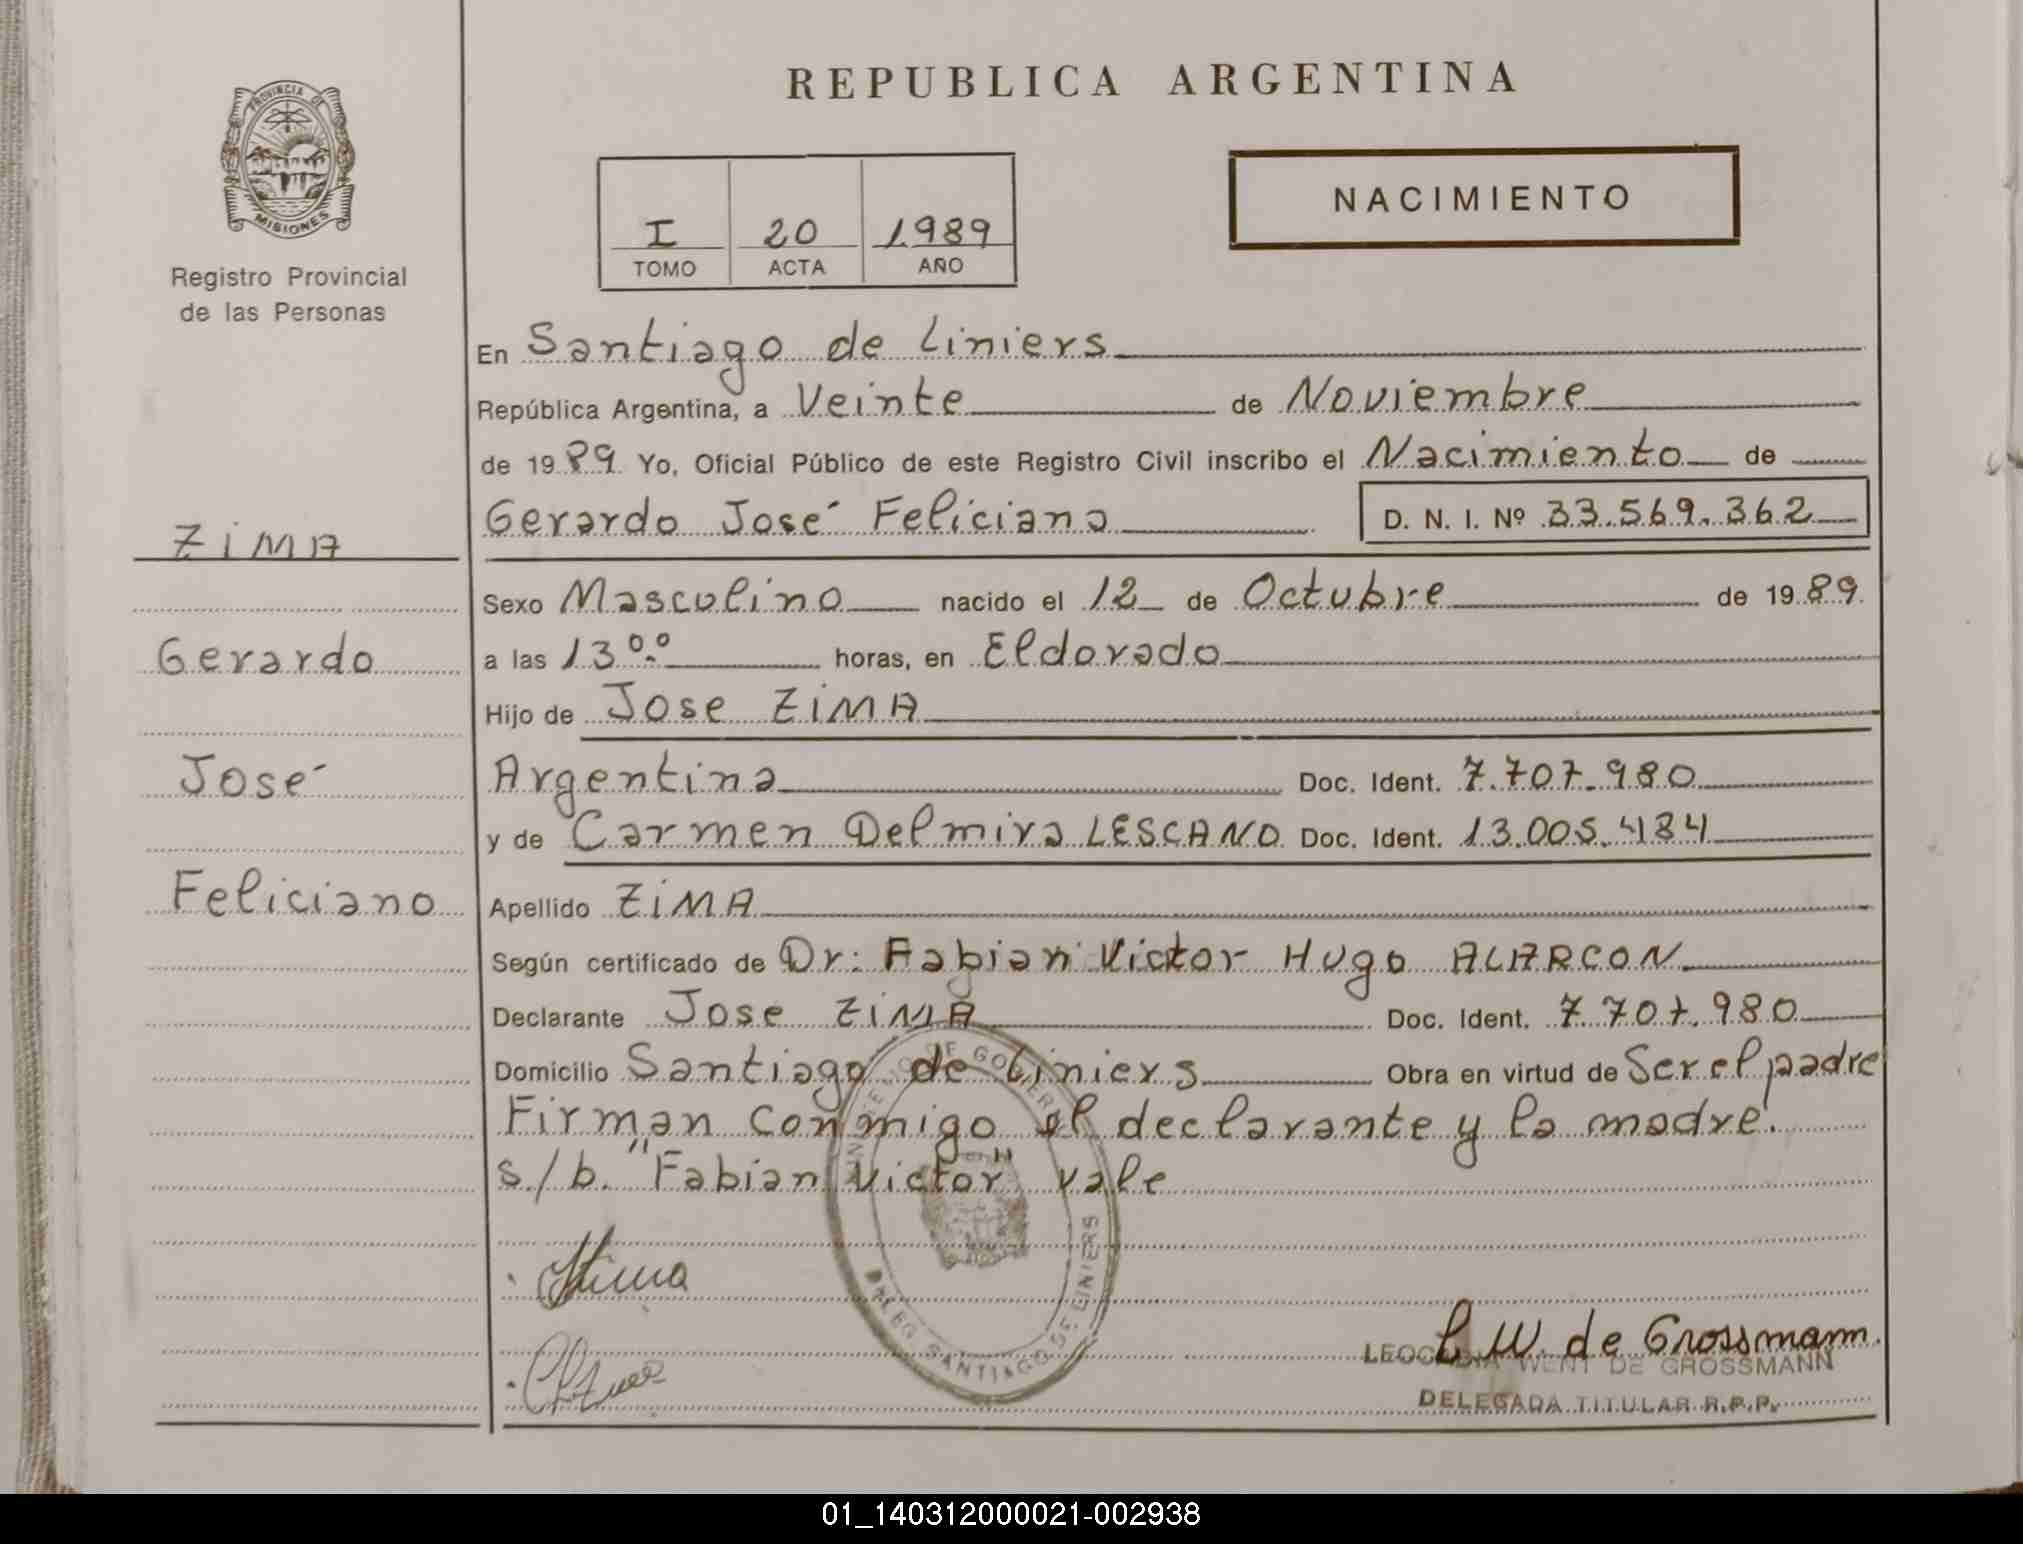 REPUBLICA ARGENTINA
PROVINCIA DE
MISIONES
Registro Provincial
de las Personas
I 20 1989
TOMO ACTA AÑO
NACIMIENTO
En Santiago de Liniers
República Argentina, a Veinte de Noviembre
de 1989 Yo, Oficial Público de este Registro Civil inscribo el Nacimiento de
Gerardo José Feliciano D. N. I. Nº 33.569.362
ZiMA
Sexo Masculino nacido el 12 de Octubre de 1989.
Gerardo
a las 13 º.º horas, en Eldorado
Hijo de Jose ZiMA
José
Argentina Doc. Ident. 7.707.980
y de Carmen Delmira LESCANO Doc. Ident. 13.005.484
Feliciano
Apellido ZiMA
Según certificado de Dr: Fabian Victor Hugo ALARCON
Declarante Jose ZiMA Doc. Ident. 7.707.980
Domicilio Santiago de Liniers Obra en virtud de Ser el padre
Firman conmigo el declarante y la madre.
s/b. "Fabian Victor" vale
DE GOBIERNO
DELEG SANTIAGO DE LINIERS
L W. de Grossmann.
LEOCADIA WENT DE GROSSMANN
DELEGADA TITULAR R.P.P.
01_140312000021-002938